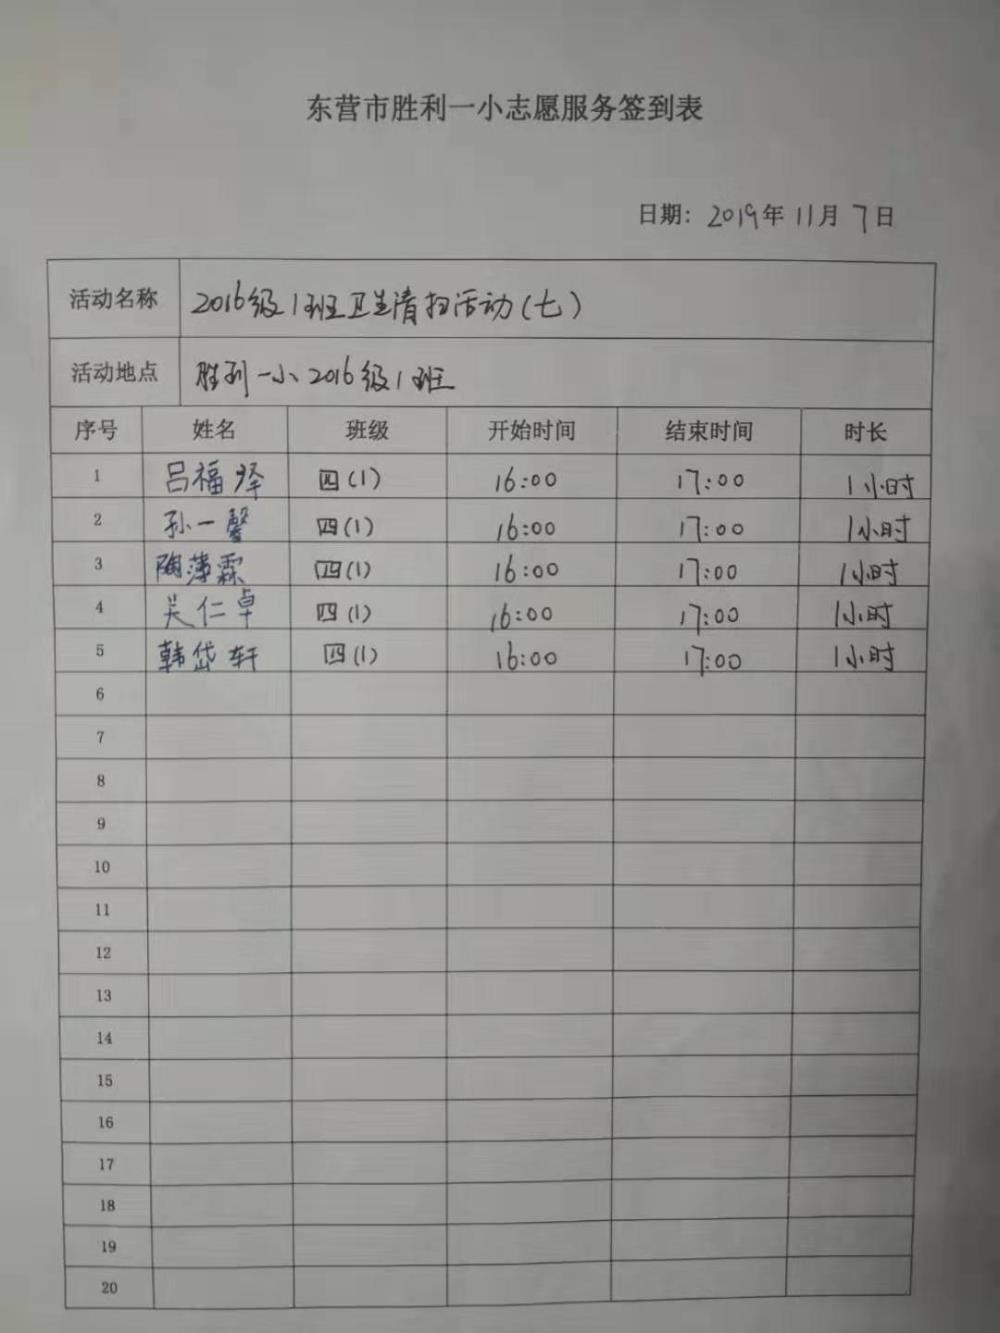 东营市胜利一小志愿服务签到表
日期：2019年11月7日
活动名称 2016级1班卫生清扫活动(七)
活动地点 胜利一小2016级1班
序号 姓名 班级 开始时间 结束时间 时长
1 吕福泽 四(1) 16:00 17:00 1小时
2 孙一馨 四(1) 16:00 17:00 1小时
3 陶薄霖 四(1) 16:00 17:00 1小时
4 吴仁卓 四(1) 16:00 17:00 1小时
5 韩岱轩 四(1) 16:00 17:00 1小时
6
7
8
9
10
11
12
13
14
15
16
17
18
19
20